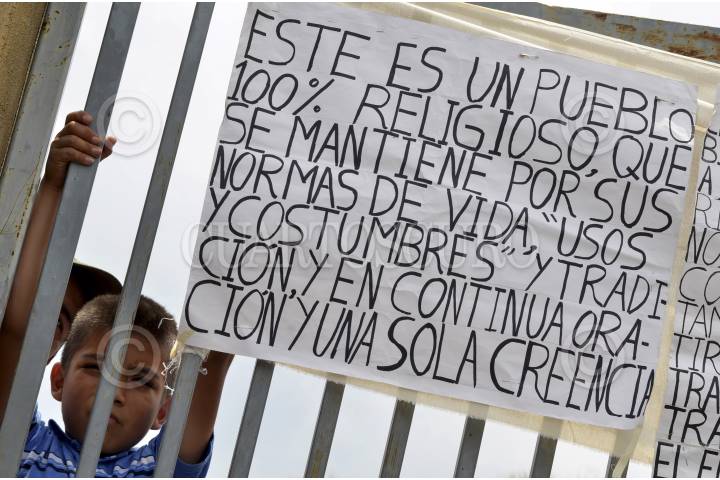 ESTE ES UN PUEBLO
100% RELIGIOSO, QUE
SE MANTIENE POR SUS
NORMAS DE VIDA, "USOS
Y COSTUMBRES" Y TRADI-
CIÓN, Y EN CONTINUA ORA-
CIÓN, Y UNA SOLA CREENCIA
CUARTOSCURO